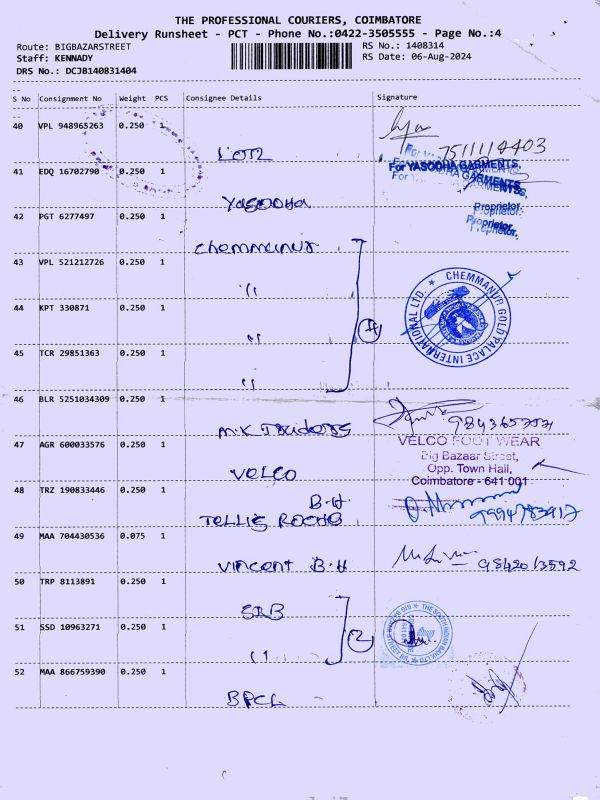 THE PROFESSIONAL COURIERS, COIMBATORE
Delivery Runsheet - PCT - Phone No.:0422-3505555 - Page No.:4
Route: BIGBAZARSTREET
RS No.: 1408314
Staff: KENNADY
RS Date: 06-Aug-2024
DRS No.: DCJB140831404
S No Consignment No Weight PCS Consignee Details Signature
40 VPL 948965263 0.250 1
41 EDQ 16702790 0.250 1
For YASODHA GARMENTS,
Proprietor.
Yasodha
42 PGT 6277497 0.250 1
Chemmanur
43 VPL 521212726 0.250 1
"
CHEMMANUR GOLD PALACE INTERNATIONAL LTD.
44 KPT 330871 0.250 1
"
4
45 TCR 29851363 0.250 1
"
46 BLR 5251034309 0.250 1
M.K
47 AGR 600033576 0.250 1
VELCO FOOT WEAR
Big Bazaar Street,
Opp. Town Hall,
Coimbatore - 641 001
VELCO
48 TRZ 190833446 0.250 1
B.H
49 MAA 704430536 0.075 1
Vincent B.H
50 TRP 8113891 0.250 1
SRB
51 SSD 10963271 0.250 1
"
2
THE SOUTH INDIAN BANK LTD
52 MAA 866759390 0.250 1
BPCL